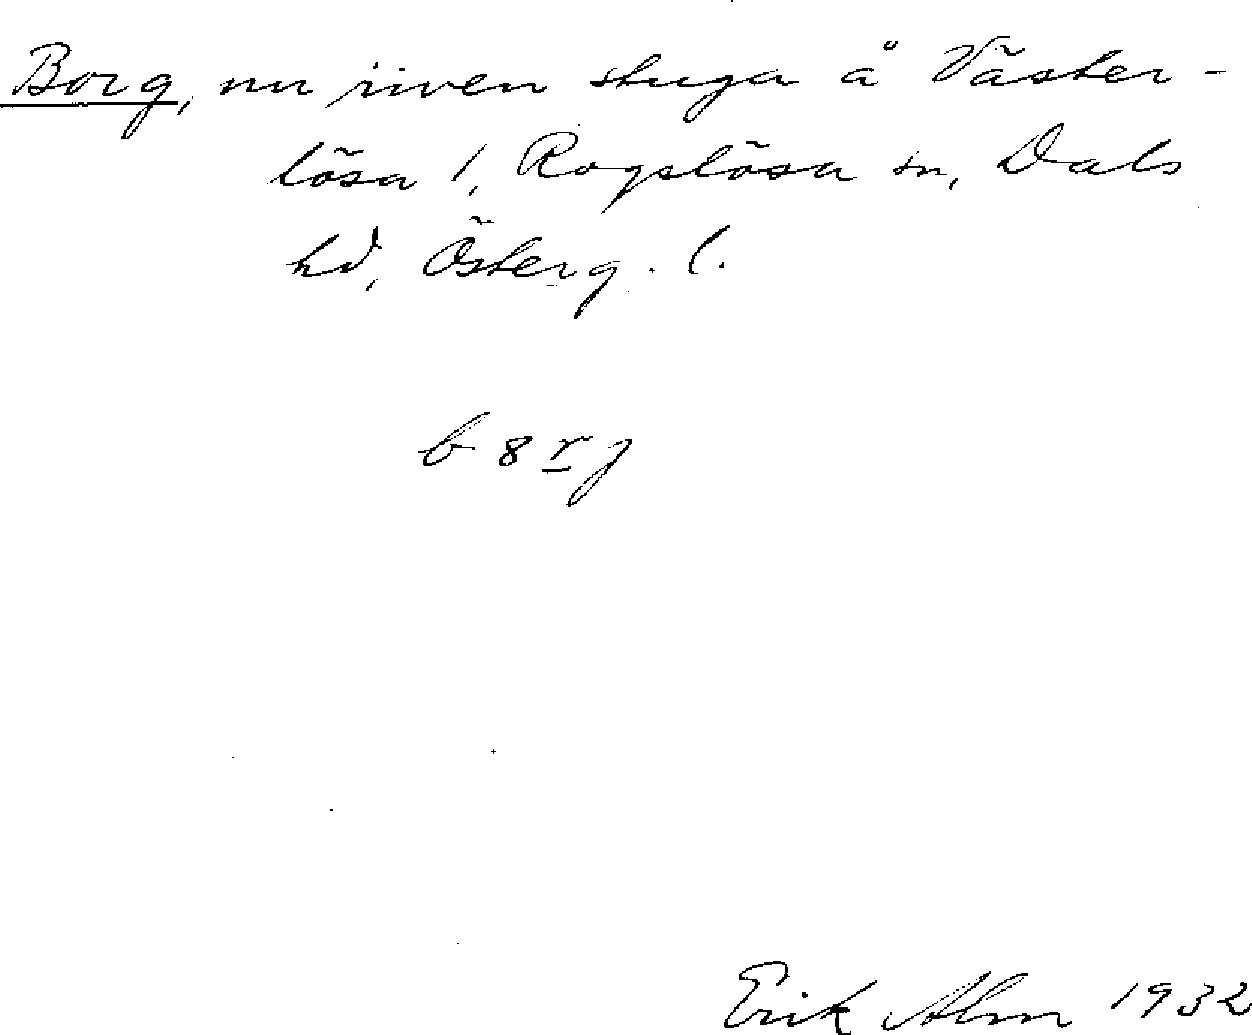 Borg, nu riven stuga å Väster-
lösa 1, Rogslösa sn, Dals
hd, Österg. l.
b 8 r j
Erik Alm 1932